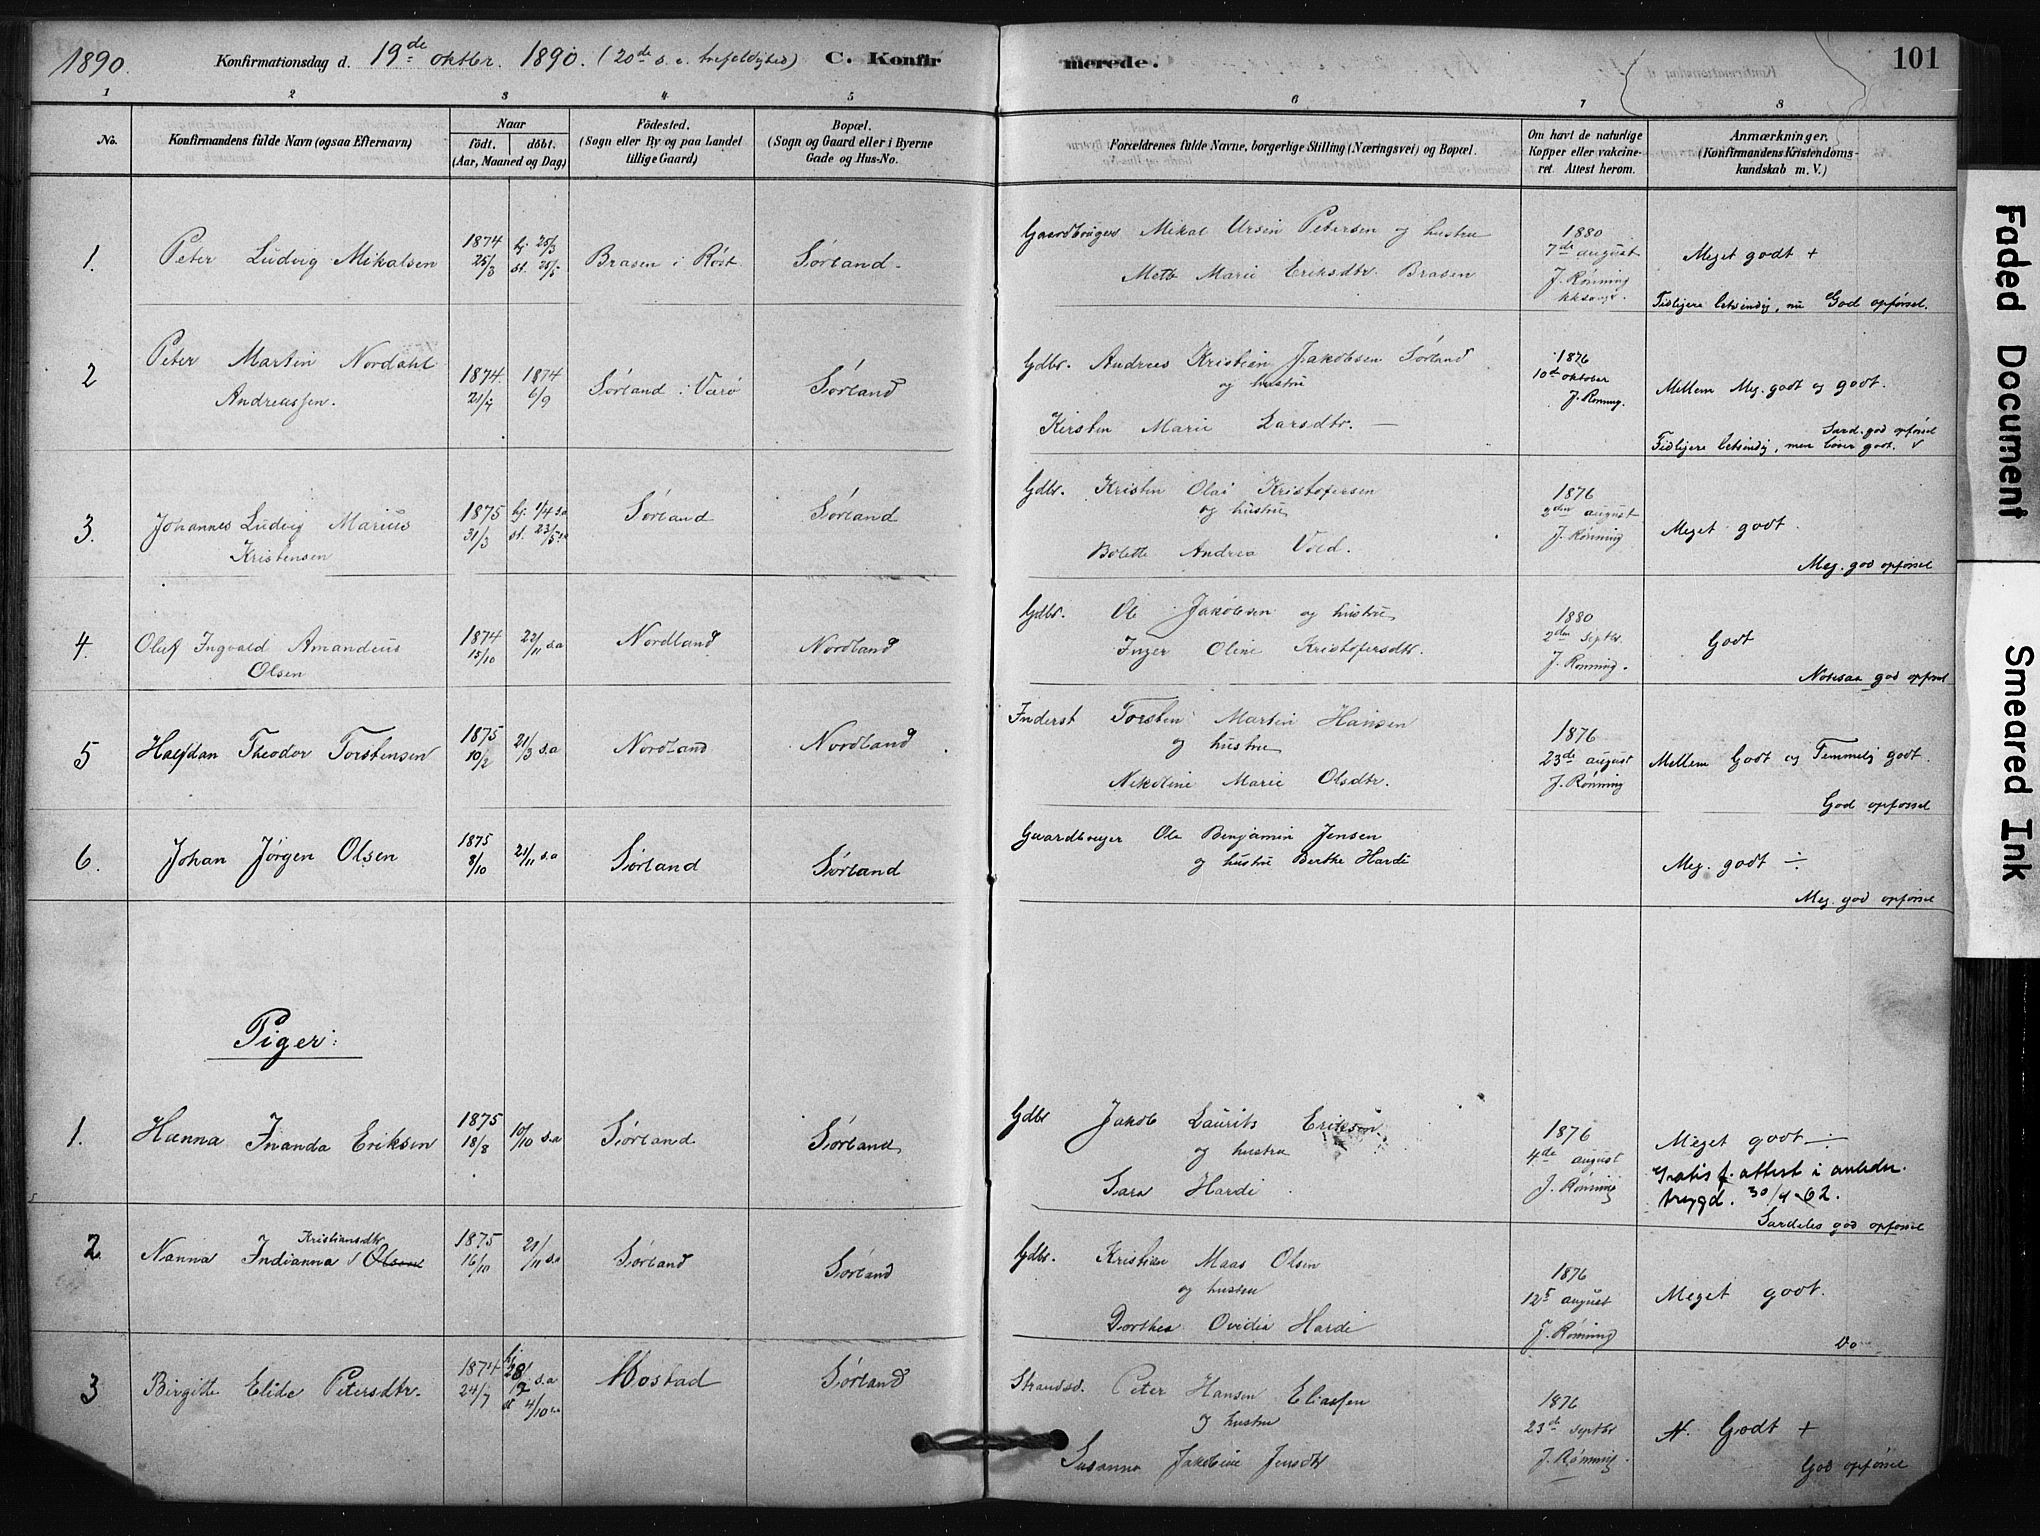 1890. Konfirmationsdag d. 19de oktbr. 1890. (20de s. e. trefoldighed) C. Konfirmerede. 101
1 2 3 4 5 6 7 8
No. Konfirmandens fulde Navn (ogsaa Efternavn) Naar født. døbt. (Aar, Maaned og Dag) Fødested. (Sogn eller By og paa Landet tillige Gaard) Bopæl. (Sogn og Gaard eller i Byerne Gade og Hus-No. Forældrenes fulde Navne, borgerlige Stilling (Næringsvei) og Bopæl. Om havt de naturlige Kopper eller vakcineret. Attest herom. Anmærkninger. (Konfirmandens Kristendomskundskab m. V.)
1. Peter Ludvig Mikalsen 1874 25/3 hj. 25/3 st. 25/5 Brasen i Røst Sørland. Gaardbruger Mikal Ursin Petersen og hustru
Mette Marie Eriksdtr. Brasen
1880 7de august J. Rønning
Meget godt +
Tidligere letsindig, nu God opførsel.
2 Peter Martin Nordahl
Andreassen.
1874 21/7 1874 6/9 Sørland i Værø Sørland
Gdbr. Andreas Kristian Jakobsen Sørland
og hustru
Kirsten Marie Larsdtr. —
1876 10de oktober J. Rønning.
Mellem Meg. godt og godt.
Særd. god opførsel
Tidligere letsindig, men lover godt.
3. Johannes Ludvig Marius
Kristensen
1875 31/3 hj. 1/4 s.a st. 23/5 s.a Sørland Sørland
Gdbr. Kristen Olai Kristofersen
og hustru
Bolette Andrea Vold.
1876 2den august J. Rønning
Meget godt.
Meg. god opførsel
4. Oluf Ingvald Amandus
Olsen
1874 15/10 22/11 s.a Nordland Nordland
Gdbr. Ole Jakobsen og hustru
Inger Oline Kristofersdtr.
1880 2den Septbr. J. Rønning.
Godt
Notesaa god opførsel
5 Halfdan Theodor Torstensen 1875 10/2 21/3 s.a Nordland Nordland
Inderst Torsten Martin Hansen
og hustru
Nikoline Marie Olsdtr.
1876 23de august J. Rønning
Mellem Godt og Temmelig godt.
God opførsel
6. Johan Jørgen Olsen 1875 8/10 21/11 s.a Sørland Sørland
Gaardbruger Ole Benjamin Jensen
og hustru Berthe Hardi
Meg. godt ÷
Meg. god opførsel
Piger:
1. Hanna Inanda Eriksen 1875 18/8 10/10 s.a Sørland Sørland
Gdbr Jakob Laurits Eriksen
og hustru
Sara Hardi
1876 4de august J. Rønning
Meget godt ÷
Gratis f. attest i anledn.
trygd. 30/4-62.
Særdeles god opførsel
2 Kristiansdtr
Nanna Indianna Olsen 1875 16/10 21/11 s.a Sørland Sørland
Gdbr. Kristian Maas Olsen
og hustru
Dorthea Ovidia Hardi
1876 12te august J. Rønning
Meget godt.
Do
3 Birgitte Elide Petersdtr. 1874 24/7 st 4/10 s.a Mostad Sørland
Strandsd. Peter Hansen Eliassen
og hustru
Susanna Jakobine Jensdtr
1876 23de septbr J. Rønning.
N. Godt +
God opførsel
Faded Document
Smeared Ink